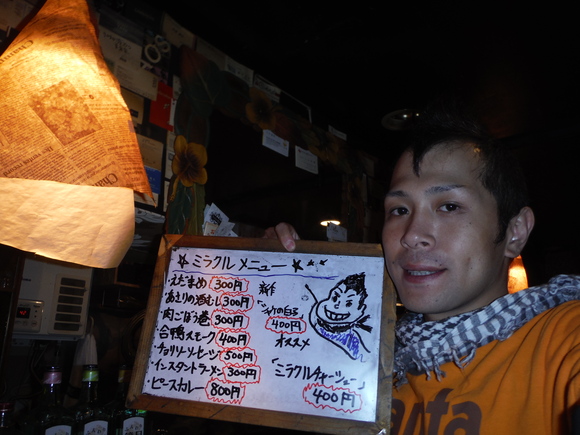 ☆ミラクルメニュー☆
・えだまめ 300円
・あさりの酒むし 300円
・肉ごぼう巻 300円
・合鴨スモーク 400円
・チョリソーソーセージ 500円
・インスタントラーメン 300円
・ピースカレー 800円
の白子
400円
オススメ
ミラクルチャーシュー
400円